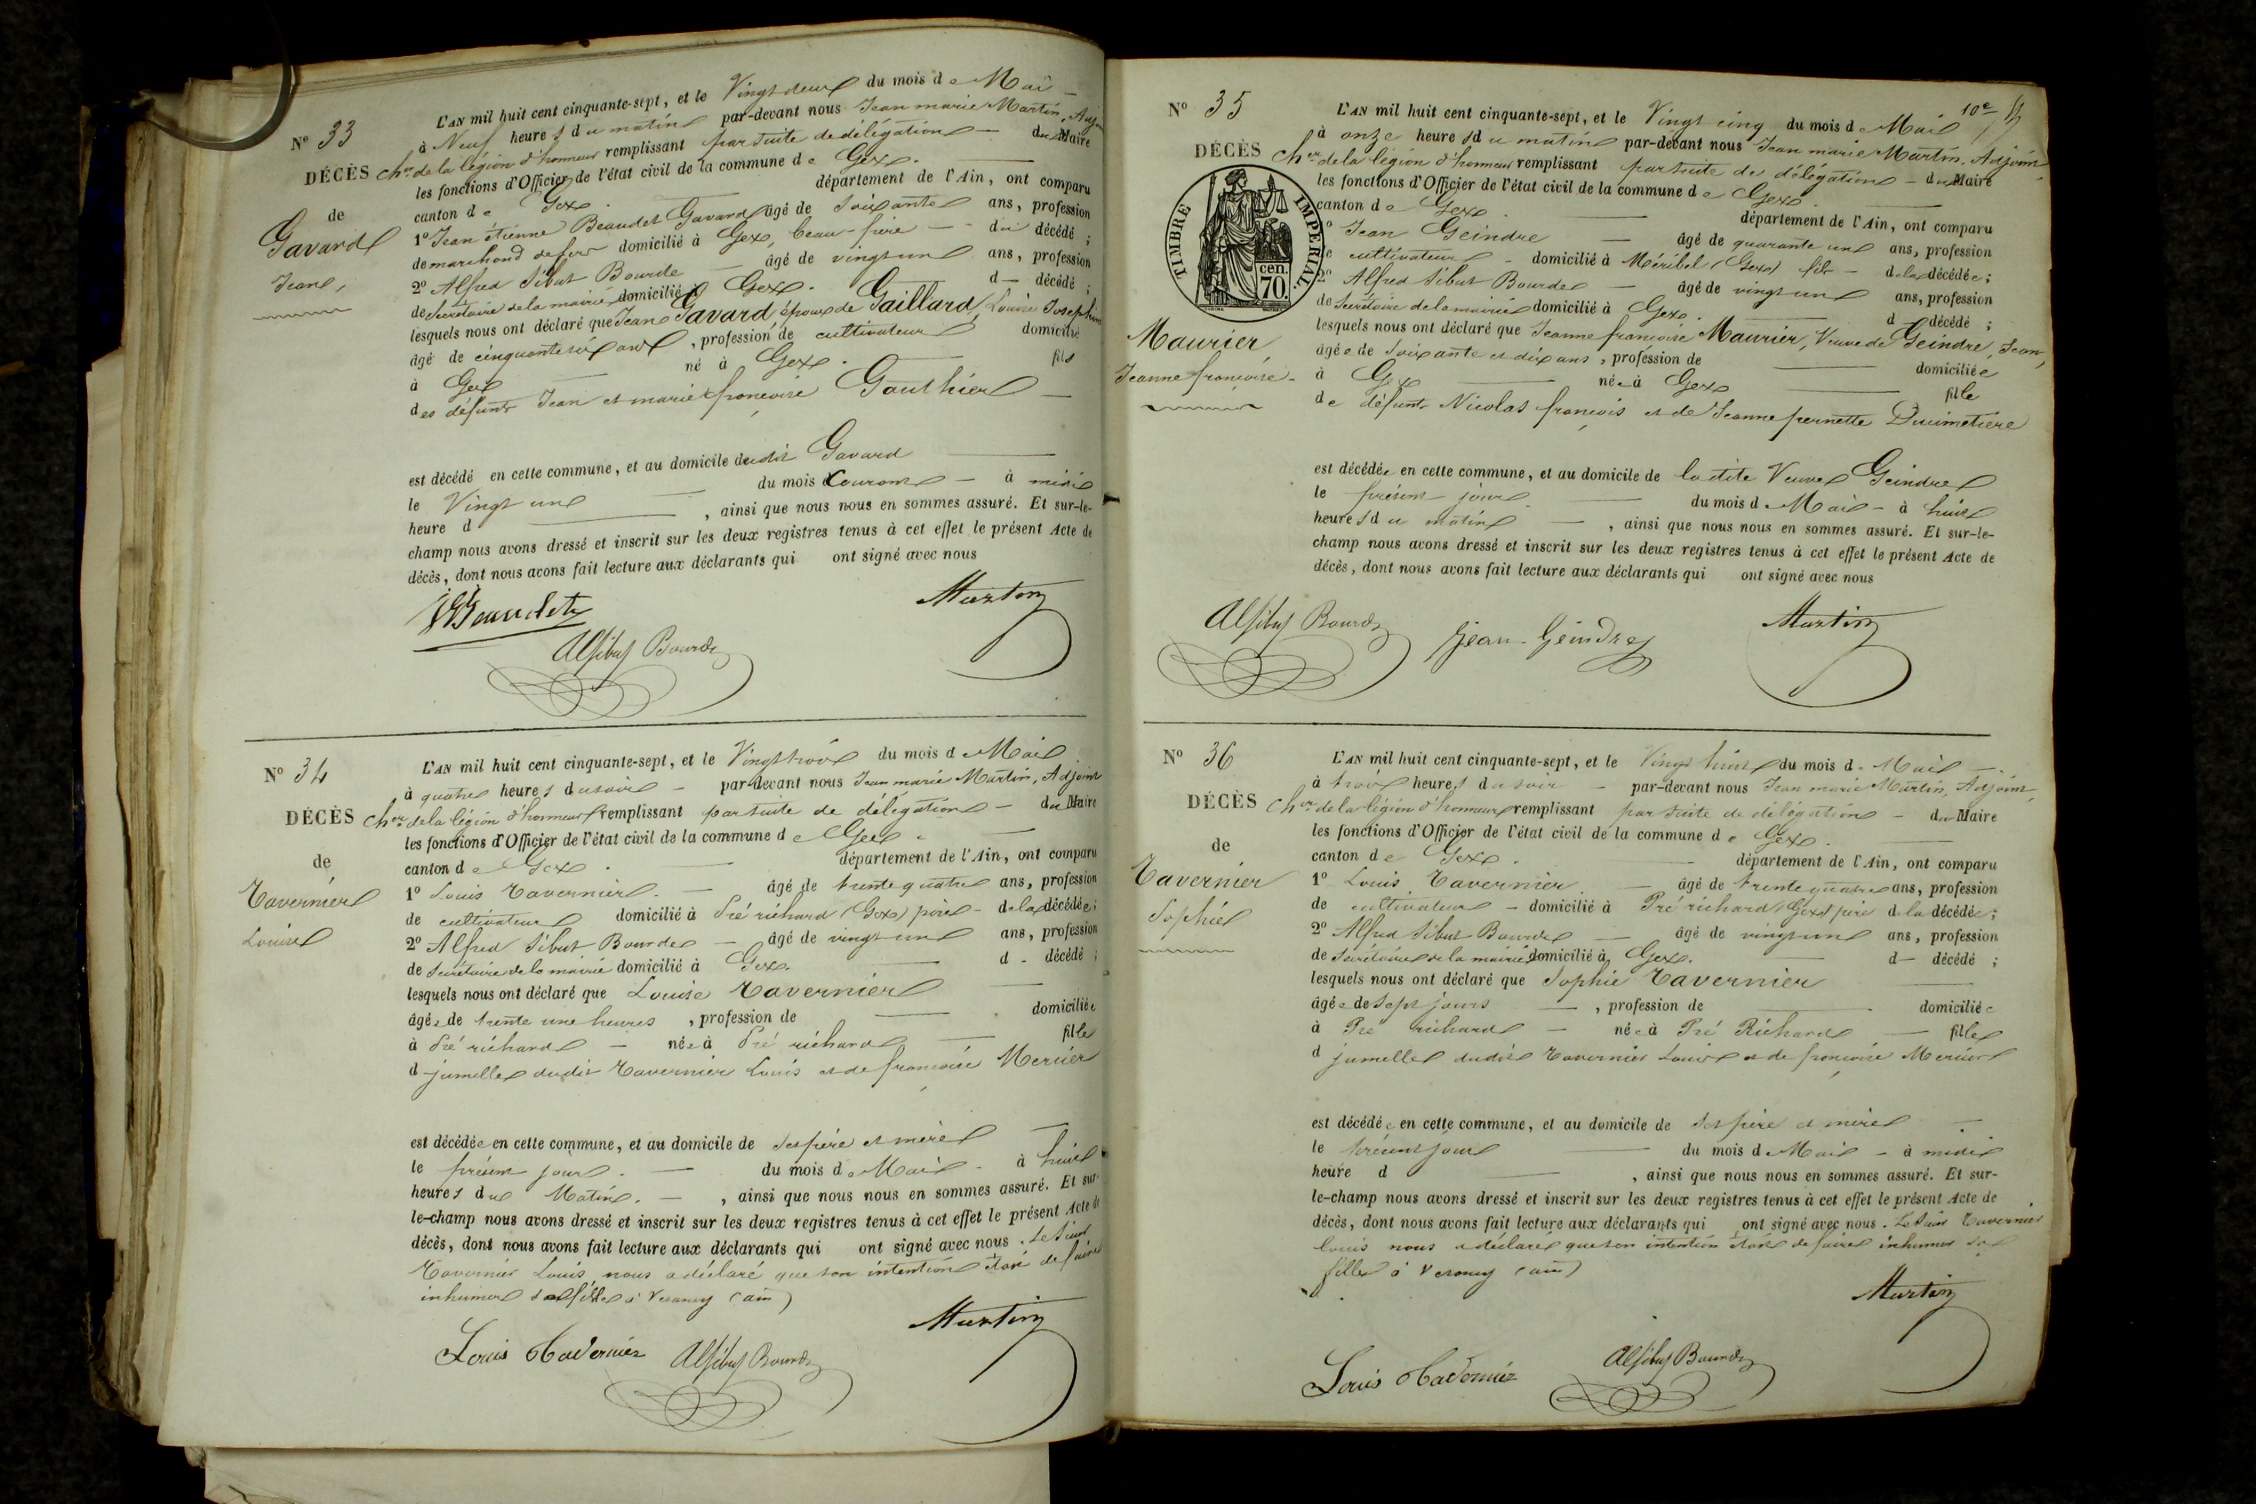 L'AN mil huit cent cinquante-sept, et le Vingt deux du mois de Mai
N° 33
à Neuf heures du matin par-devant nous Jean marie Martin, Adjoint
DÉCÈS
Cher de la légion d'honneur remplissant par suite de délégation du Maire
les fonctions d'Officier de l'état civil de la commune de Gex.
de
canton de Gex. département de l'Ain, ont comparu
Gavard
1° Jean étienne Beaudet Gavard âgé de soixante ans, profession
Jean,
de marchand de fer domicilié à Gex, beau-frère du décédé ;
2° Alfred Sibut Bourde âgé de vingt un ans, profession
de Secrétaire de la mairie domicilié à Gex. d décédé ;
lesquels nous ont déclaré que Jean Gavard, époux de Gaillard, Louise Josephine
âgé de cinquante six ans, profession de cultivateur domicilié
à Gex né à Gex. fils
des défunts Jean et marie françoise Gauthier
est décédé en cette commune, et au domicile dudit Gavard
le Vingt un du mois Courant à midi
heure d , ainsi que nous nous en sommes assuré. Et sur-le-
champ nous avons dressé et inscrit sur les deux registres tenus à cet effet le présent Acte de
décès, dont nous avons fait lecture aux déclarants qui ont signé avec nous
Beaudet
Martin
A Sibut Bourde
L'AN mil huit cent cinquante-sept, et le Vingt trois du mois de Mai
N° 34
à quatre heures du soir par-devant nous Jean marie Martin, Adjoint
DÉCÈS
Cher de la légion d'honneur remplissant par suite de délégation du Maire
les fonctions d'Officier de l'état civil de la commune de Gex
de
canton de Gex. département de l'Ain, ont comparu
Tavernier
1° Louis Tavernier. âgé de trente quatre ans, profession
Louise
de cultivateur domicilié à Pré richard (Gex) père de la décédée ;
2° Alfred Sibut Bourde âgé de vingt un ans, profession
de Secrétaire de la mairie domicilié à Gex. d décédé ;
lesquels nous ont déclaré que Louise Tavernier
âgée de trente une heures, profession de domiciliée
à Pré richard née à Pré richard fille
d jumelle dudit Tavernier Louis et de françoise Mercier
est décédée en cette commune, et au domicile de ses père et mère
le présent jour. du mois de Mai à huit
heures du Matin. , ainsi que nous nous en sommes assuré. Et sur-
le-champ nous avons dressé et inscrit sur les deux registres tenus à cet effet le présent Acte de
décès, dont nous avons fait lecture aux déclarants qui ont signé avec nous. Le sieur
Tavernier Louis nous a déclaré que son intention était de faire
inhumer sa fille à Vesancy (ain)
Martin
Louis Tavernier A Sibut Bourde
10e
N° 35
L'AN mil huit cent cinquante-sept, et le Vingt cinq du mois de Mai
à onze heures du matin par-devant nous Jean marie Martin, Adjoint,
DÉCÈS
Cher de la légion d'honneur remplissant par suite de délégation du Maire
les fonctions d'Officier de l'état civil de la commune de Gex.
canton de Gex. département de l'Ain, ont comparu
TIMBRE IMPERIAL.
cen.
70.
1° Jean Geindre âgé de quarante un ans, profession
de cultivateur domicilié à Méribel (Gex) fils de la décédée ;
2° Alfred Sibut Bourde âgé de vingt un ans, profession
de Secrétaire de la mairie domicilié à Gex. d décédé ;
Maurier,
Jeanne françoise
lesquels nous ont déclaré que Jeanne françoise Maurier, Veuve de Geindre, Jean,
âgée de soixante et dix ans, profession de domiciliée
à Gex née à Gex fille
de défunts Nicolas françois et de Jeanne pernette Ducimetière
est décédée en cette commune, et au domicile de la dite Veuve Geindre
le présent jour du mois de Mai à huit
heures du matin , ainsi que nous nous en sommes assuré. Et sur-le-
champ nous avons dressé et inscrit sur les deux registres tenus à cet effet le présent Acte de
décès, dont nous avons fait lecture aux déclarants qui ont signé avec nous
A Sibut Bourde Jean Geindre Martin
N° 36
L'AN mil huit cent cinquante-sept, et le Vingt huit du mois de Mai
à trois heures du soir par-devant nous Jean marie Martin, Adjoint,
DÉCÈS
Cher de la légion d'honneur remplissant par suite de délégation du Maire
les fonctions d'Officier de l'état civil de la commune de Gex.
de
canton de Gex. département de l'Ain, ont comparu
Tavernier
1° Louis Tavernier âgé de trente quatre ans, profession
Sophie
de cultivateur domicilié à Pré richard (Gex) père de la décédée ;
2° Alfred Sibut Bourde âgé de vingt un ans, profession
de Secrétaire de la mairie domicilié à Gex. d décédé ;
lesquels nous ont déclaré que Sophie Tavernier
âgée de sept jours , profession de domiciliée
à Pré richard née à Pré Richard fille
d jumelle dudit Tavernier Louis et de françoise Mercier
est décédée en cette commune, et au domicile de ses père et mère
le présent jour du mois de Mai à midi
heure d , ainsi que nous nous en sommes assuré. Et sur-
le-champ nous avons dressé et inscrit sur les deux registres tenus à cet effet le présent Acte de
décès, dont nous avons fait lecture aux déclarants qui ont signé avec nous. Le Sieur Tavernier
Louis nous a déclaré que son intention était de faire inhumer sa
fille à Vesancy (ain)
Martin
Louis Tavernier A Sibut Bourde